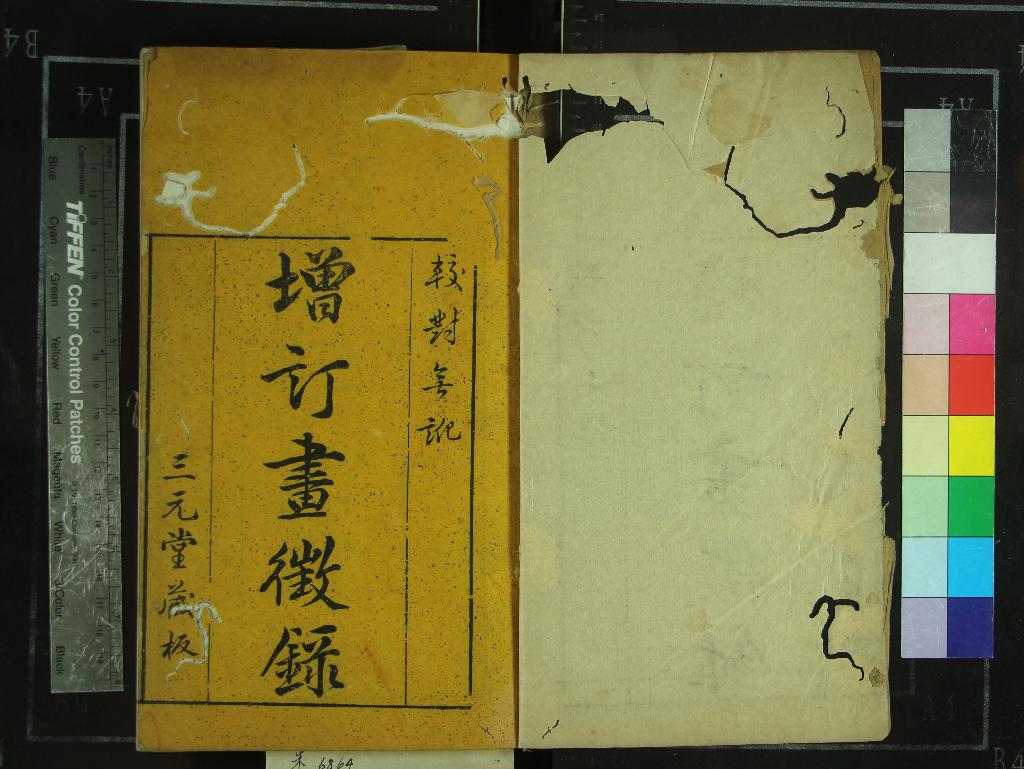 較對無訛
增訂畫徵錄
三元堂藏板
朱 6864
TIFFEN Color Control Patches
Centimetres
Inches
Blue Cyan Green Yellow Red Magenta White 3/Color Black
B4
A4
A4
A4
B4